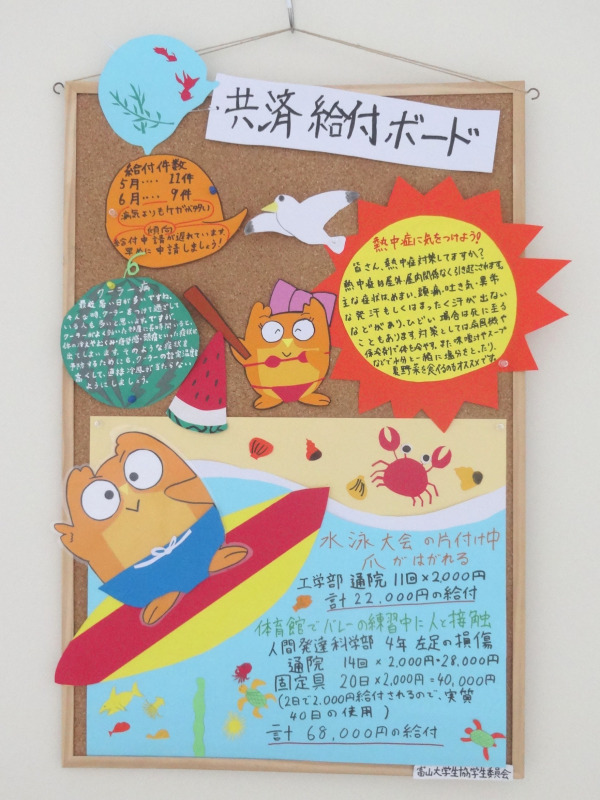 共済給付ボード
給付件数
5月‥‥11件
6月‥‥9件
病気よりもケガが多い
傾向
給付申請が遅れています。
早めに申請しましょう！
熱中症に気をつけよう！
皆さん、熱中症対策してますか？
熱中症は屋外、屋内関係なく引き起こされます。
主な症状は、めまい、頭痛、吐き気、異常
な発汗もしくはまったく汗が出ない
などがあり、ひどい場合は死に至る
こともあります。対策としては扇風機や
保冷剤で体を冷やす。また味噌汁やスープ
などで水分と一緒に塩分をとったり、
夏野菜を食べるのもオススメです。
クーラー病
最近暑い日が多いですね。
そんな時、クーラーをつけて過ごして
いる人も多いと思いますが、
クーラーがよくきいた部屋に長時間いると、
体の冷えやむくみ、倦怠感、頭痛といった症状が
出てしまいます。そのような症状を
予防するためにも、クーラーの設定温度を
高くして、直接冷風が当たらない
ようにしましょう。
水泳大会の片付け中
爪がはがれる
工学部 通院 11回×2,000円
計22,000円の給付
体育館でバレーの練習中に人と接触
人間発達科学部 4年 左足の損傷
通院 14回×2,000円=28,000円
固定具 20日×2,000円=40,000円
(2日で2,000円給付されるので、実質
40日の使用)
計 68,000円の給付
富山大学生協学生委員会